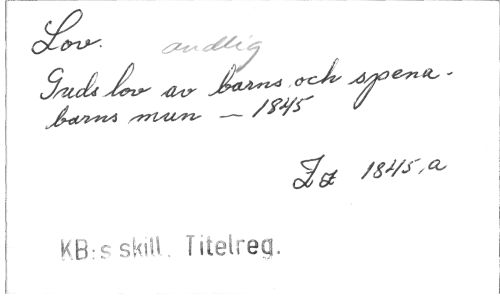 Lov. andlig
Guds lov av barns och spena-
barns mun - 1845
Zz 1845, a
KB:s skill. Titelreg.